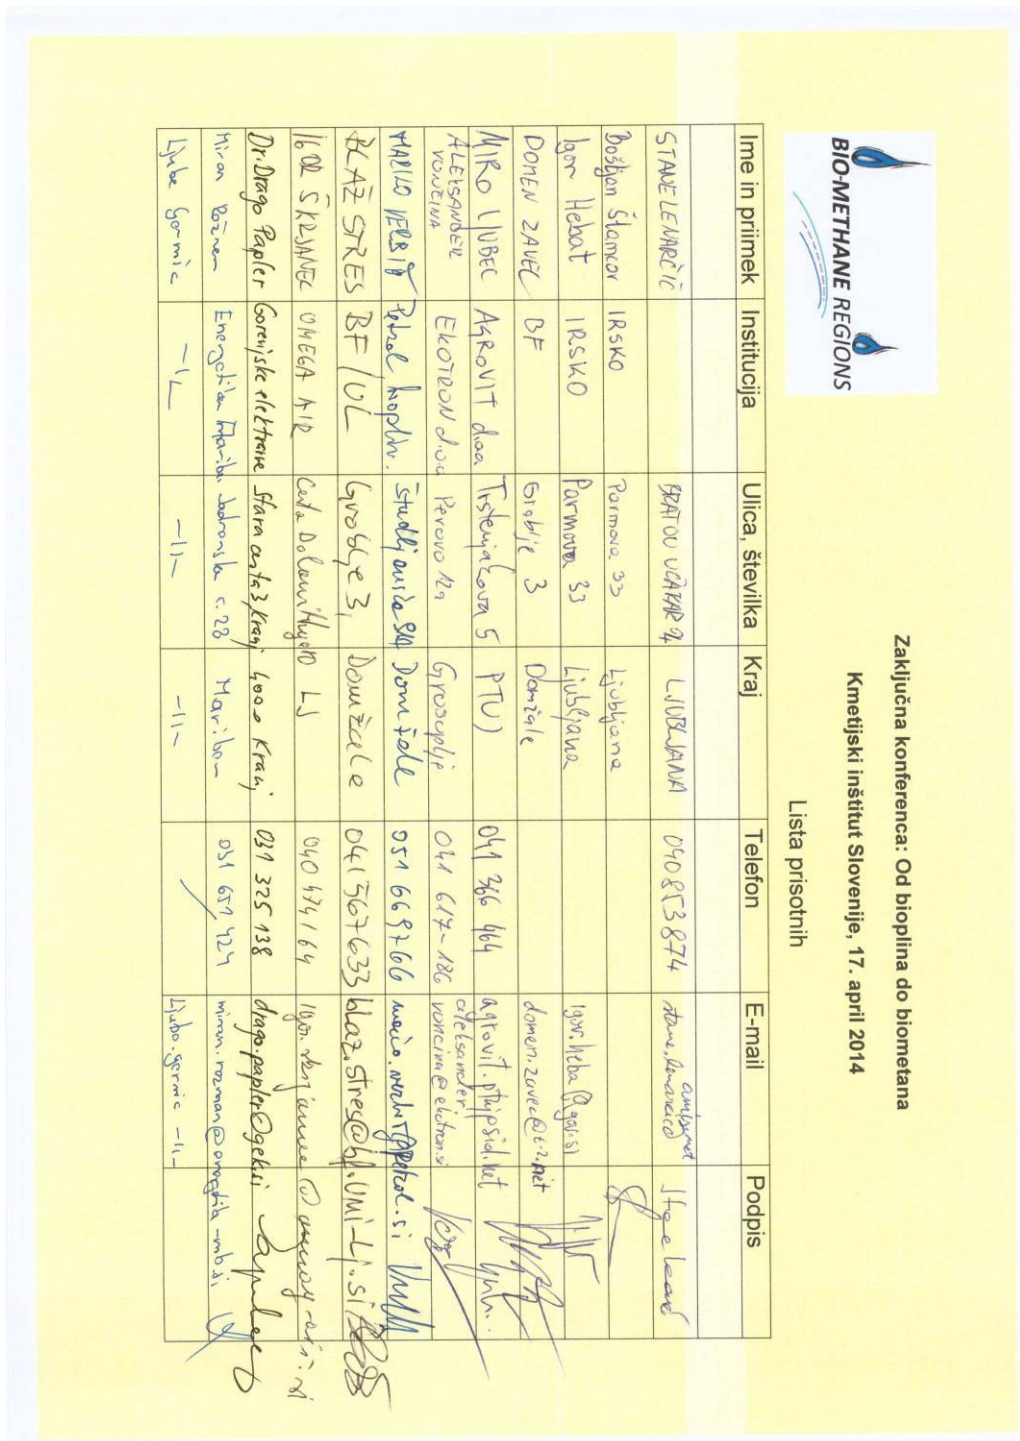 BIO-METHANE REGIONS
Zaključna konferenca: Od bioplina do biometana
Kmetijski inštitut Slovenije, 17. april 2014
Lista prisotnih
Ime in priimek Institucija Ulica, številka Kraj Telefon E-mail Podpis
STANE LENARČIČ BRATOV UČAKAR LJUBLJANA 040853874
Boštjan Štamcar IRSKO Parmova 33 Ljubljana
Igor Hebat IRSKO Parmova 33 Ljubljana
DOMEN ZAVEC BF Groblje 3 Domžale domen.zavec@t-2.net
MIRO LJUBEC AGROVIT doo Trstenjakova 5 PTUJ 041 366 464
ALEKSANDER VONČINA EKOTRON d.o.o Perovo 12a Grosuplje 041 617-186 aleksander.
voncina@ekotron.si
MARKO VERBIČ Petrol Domžale 051 669766
BLAŽ STRES BF/UL Groblje 3, Domžale 041567633 blaz.stres@bf.uni-lj.si
IGOR ŠKRJANEC OMEGA AIR Cesta LJ 040 474164
Dr. Drago Papler Gorenjske elektrarne Stara cesta 3, Kranj 4000 Kranj 031 325 138 drago.papler@gek.si
Miran Rožman Energetika Maribor Jadranska c. 28 Maribor 031 651 424
Ljubo Germič -||- -||- -||- Ljubo.germic -||-